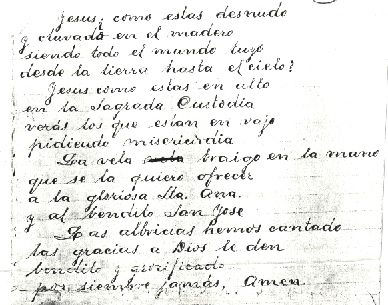 Jesus, como estas desnudo
y clavado en el madero
siendo todo el mundo tuyo
desde la tierra hasta el cielo?
Jesus como estas en alto
en la Sagrada Custodia
verás los que estan en vajo
pidiendo misericirdia
La vela traigo en la mano
que se la quiero ofrecer
a la gloriosa Sta. Ana.
y al bendito San Jose
Las albricias hemos cantado
las gracias a Dios le den
bendito y glorificado
por siempre jamás, Amen